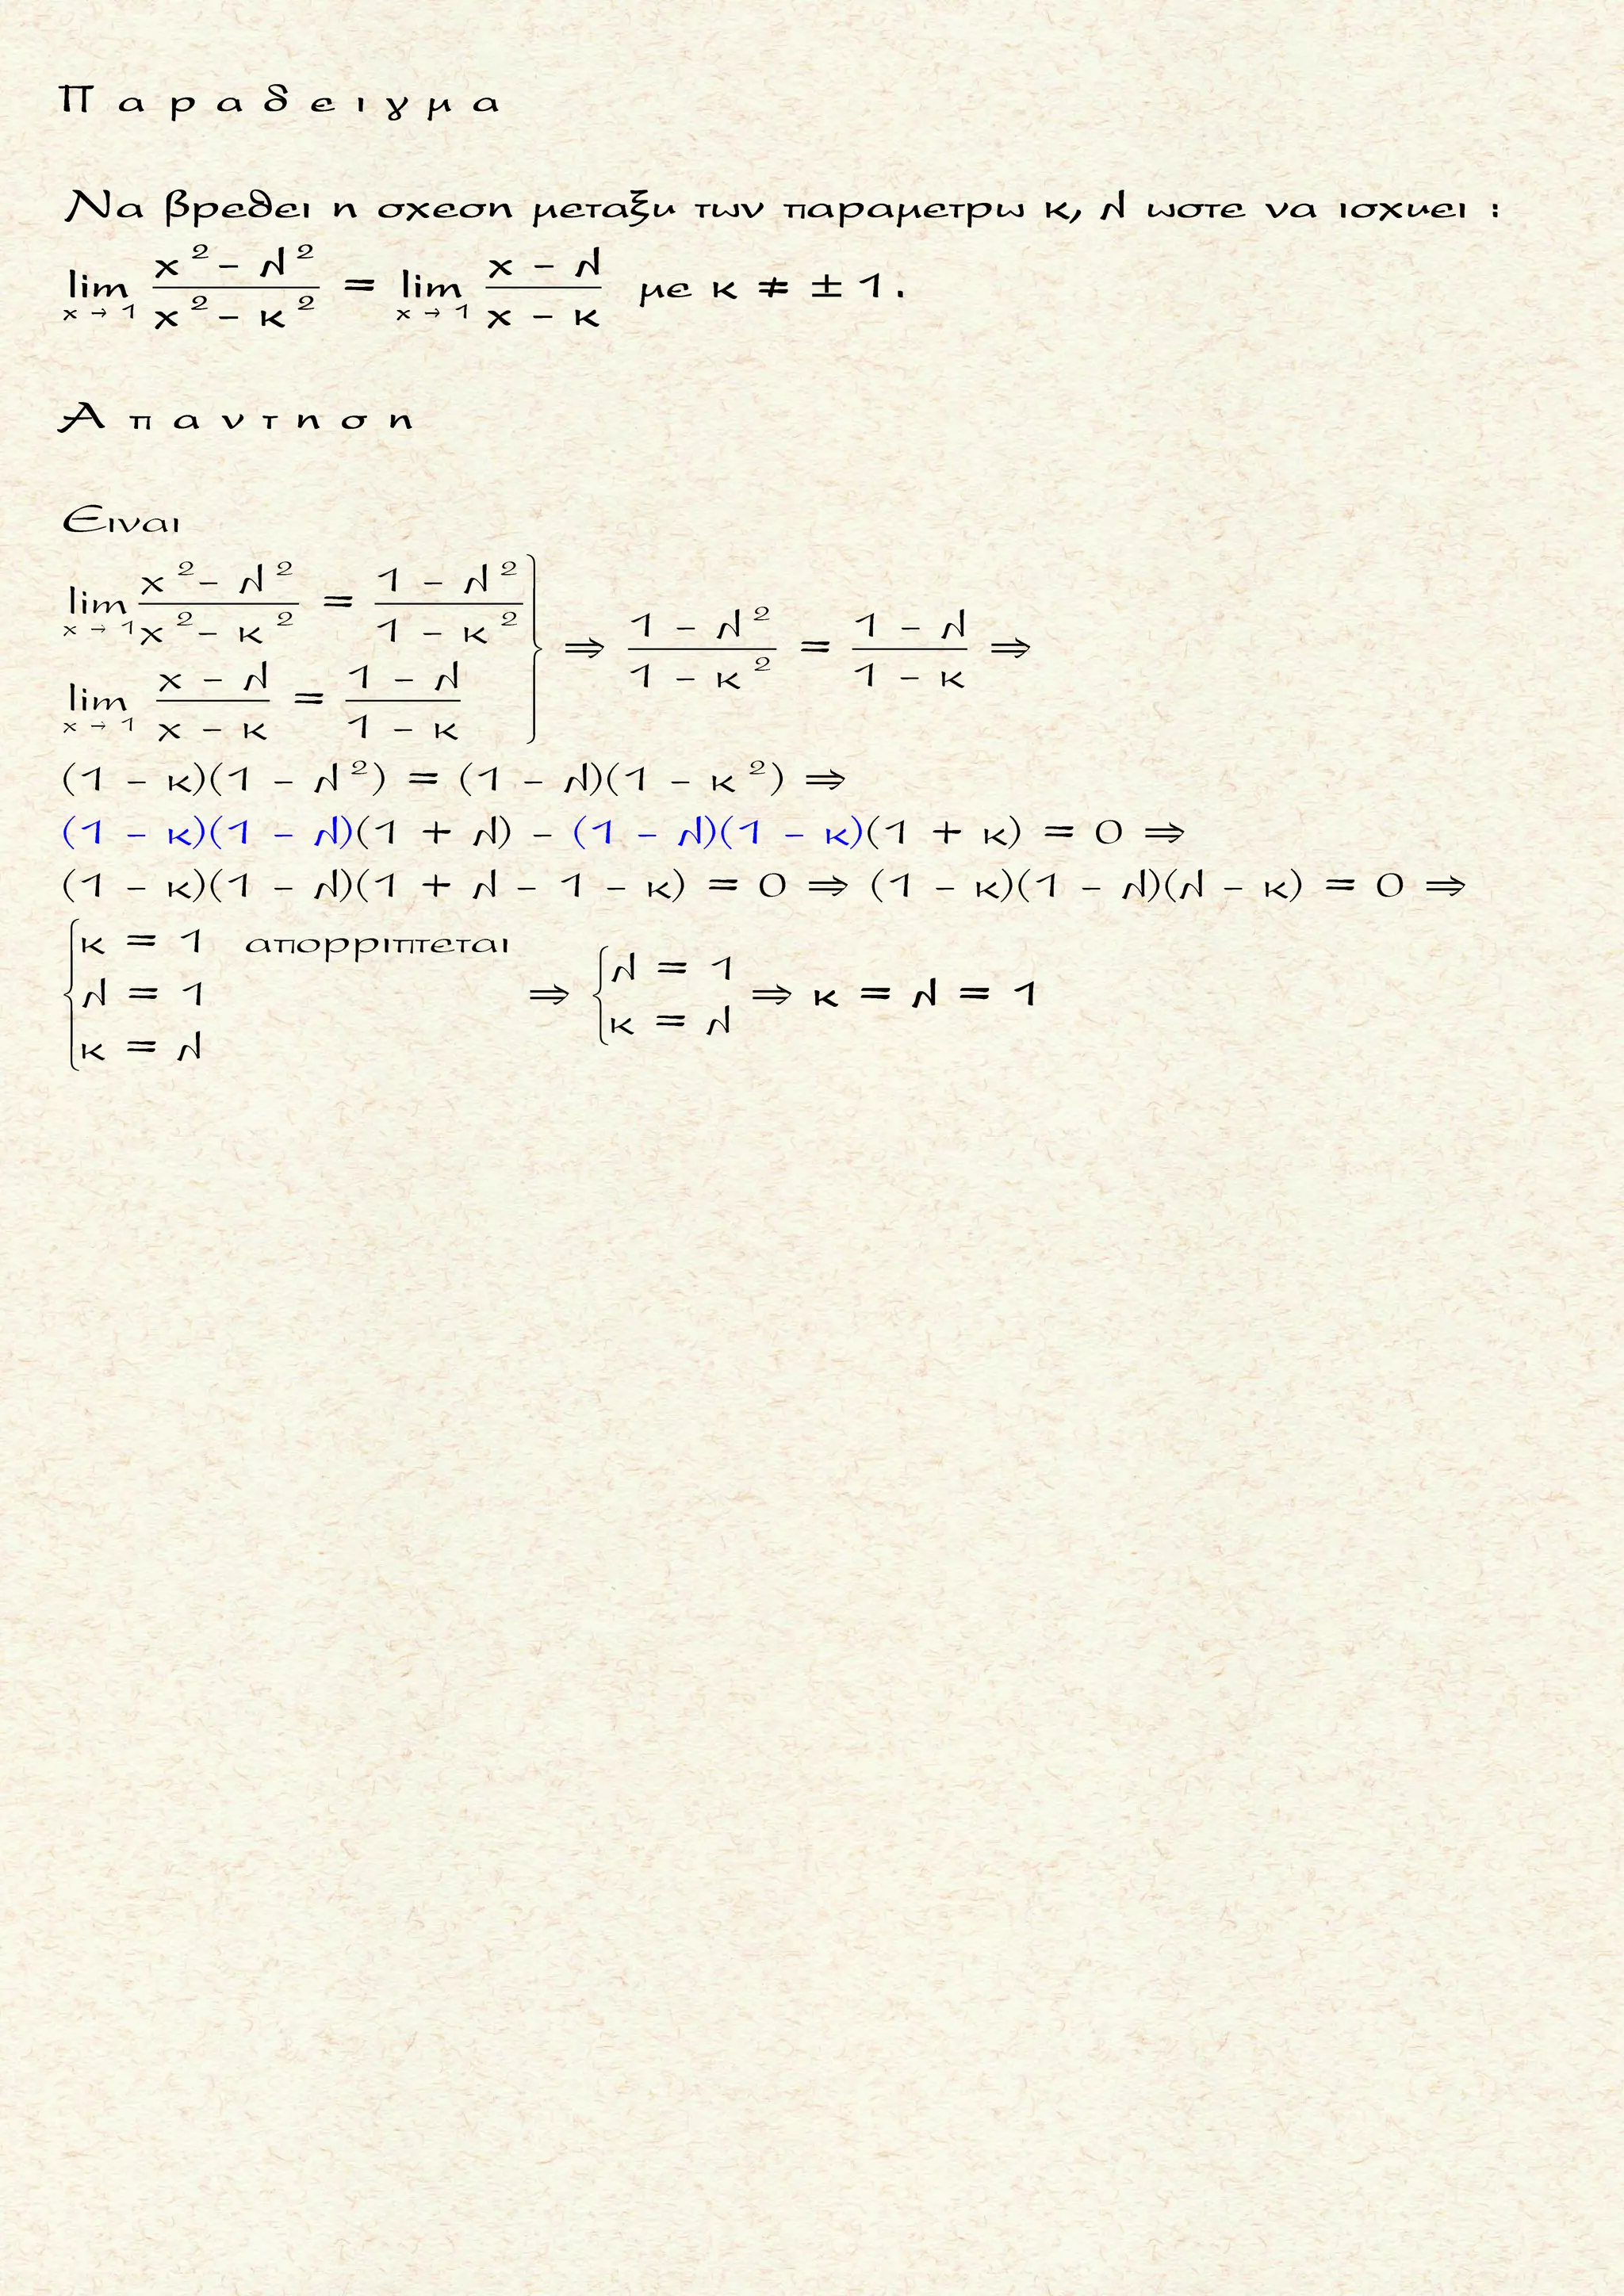 Π α ρ α δ ε ι γ μ α
Να βρεθει η σχεση μεταξυ των παραμετρω κ, λ ωστε να ισχυει :
lim x → 1 (x² – λ²)/(x² – κ²) = lim x → 1 (x – λ)/(x – κ) με κ ≠ ± 1 .
Α π α ν τ η σ η
Ειναι
lim x → 1 (x² – λ²)/(x² – κ²) = (1 – λ²)/(1 – κ²)
lim x → 1 (x – λ)/(x – κ) = (1 – λ)/(1 – κ) } ⇒ (1 – λ²)/(1 – κ²) = (1 – λ)/(1 – κ) ⇒
(1 – κ)(1 – λ²) = (1 – λ)(1 – κ²) ⇒
(1 – κ)(1 – λ)(1 + λ) – (1 – λ)(1 – κ)(1 + κ) = 0 ⇒
(1 – κ)(1 – λ)(1 + λ – 1 – κ) = 0 ⇒ (1 – κ)(1 – λ)(λ – κ) = 0 ⇒
{ κ = 1 απορριπτεται
λ = 1
κ = λ ⇒ { λ = 1
κ = λ ⇒ κ = λ = 1